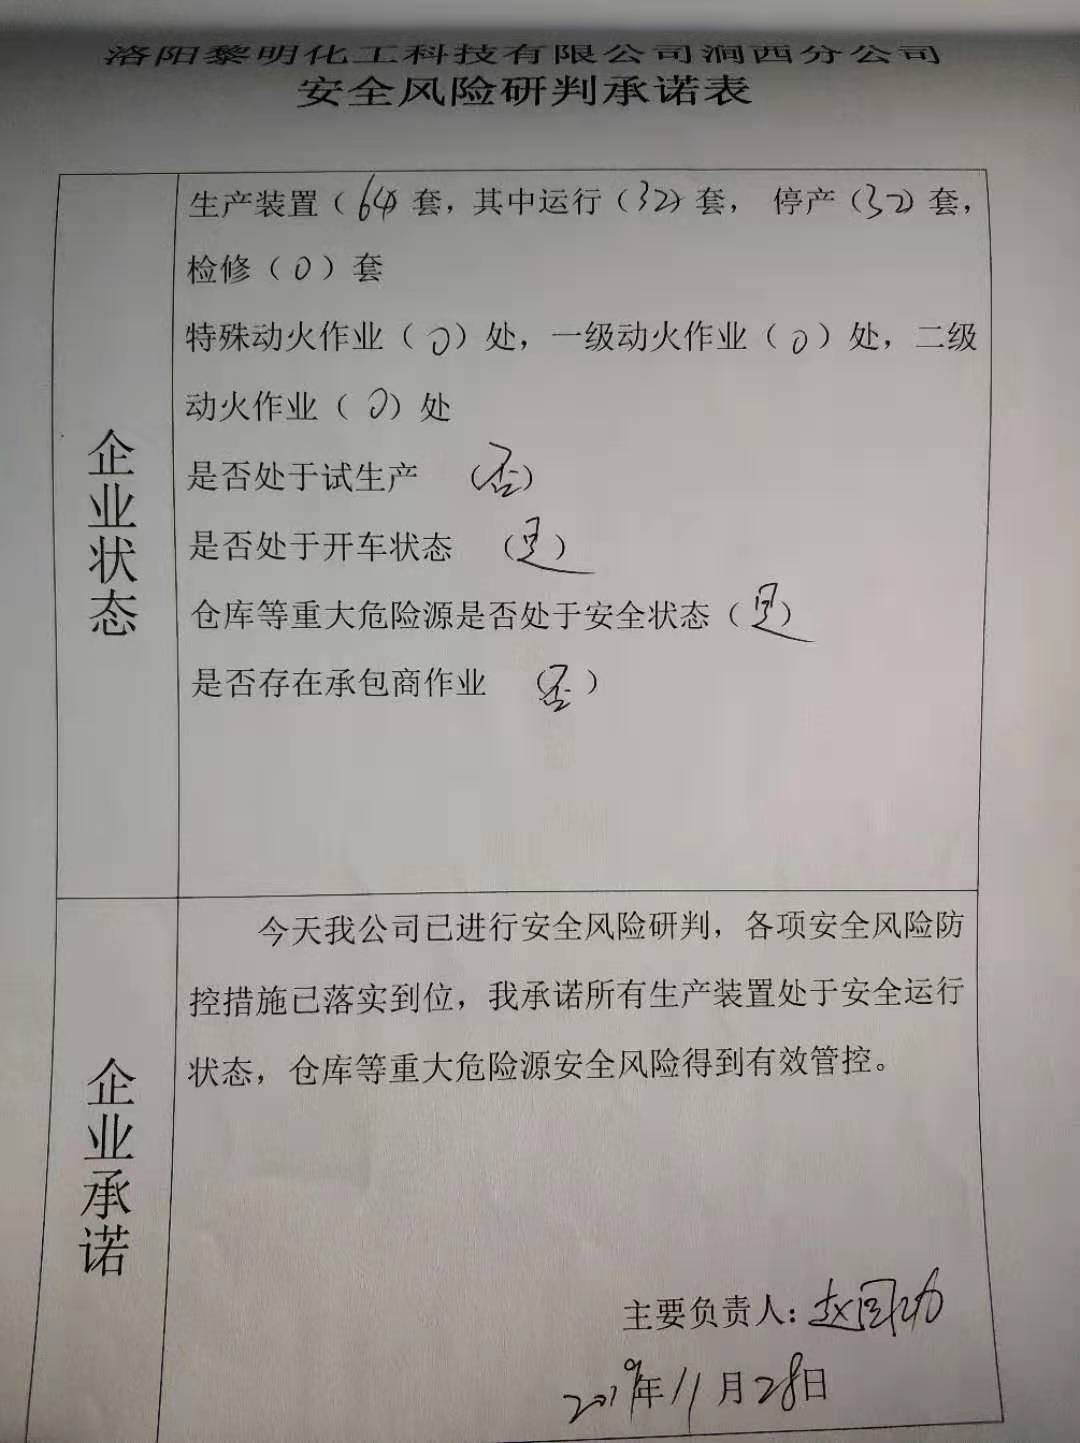 洛阳黎明化工科技有限公司涧西分公司
安全风险研判承诺表
企业状态
生产装置（64）套，其中运行（32）套， 停产（32）套，
检修（0）套
特殊动火作业（0）处，一级动火作业（0）处，二级
动火作业（0）处
是否处于试生产 （否）
是否处于开车状态 （是）
仓库等重大危险源是否处于安全状态（是）
是否存在承包商作业 （否）
企业承诺
今天我公司已进行安全风险研判，各项安全风险防
控措施已落实到位，我承诺所有生产装置处于安全运行
状态，仓库等重大危险源安全风险得到有效管控。
主要负责人：赵国功
2019年11月28日